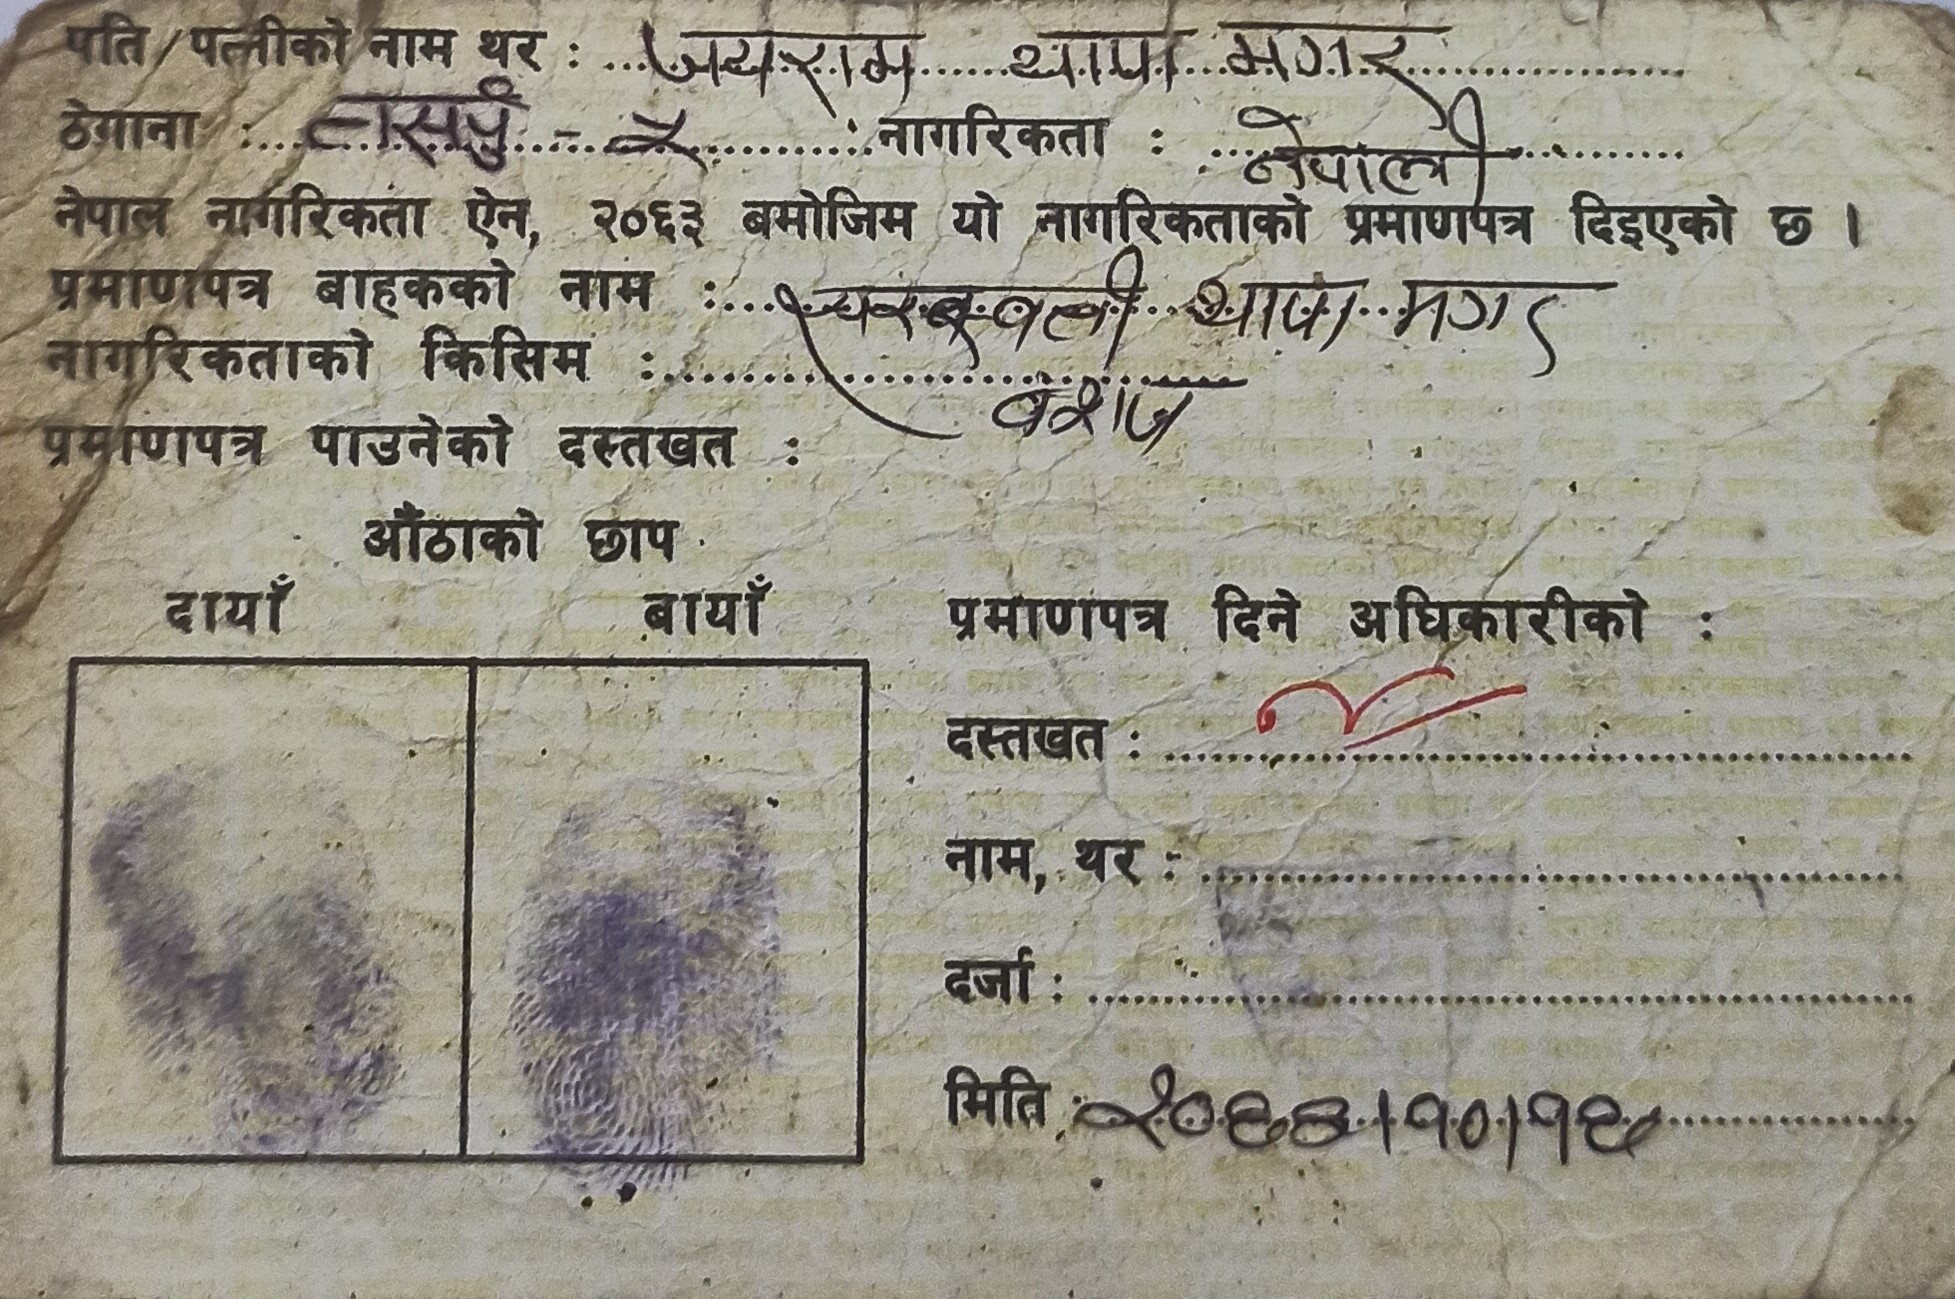 पति/पत्नीको नाम थर : जयराम थापा मगर
ठेगाना : तासर्पु - ५ : नागरिकता : नेपाली
नेपाल नागरिकता ऐन, २०६३ बमोजिम यो नागरिकताको प्रमाणपत्र दिइएको छ ।
प्रमाणपत्र बाहकको नाम : सरस्वती थापा मगर
नागरिकताको किसिम : वंशज
प्रमाणपत्र पाउनेको दस्तखत :
औंठाको छाप
दायाँ बायाँ
प्रमाणपत्र दिने अधिकारीको :
दस्तखत :
नाम, थर :
दर्जा :
मिति :